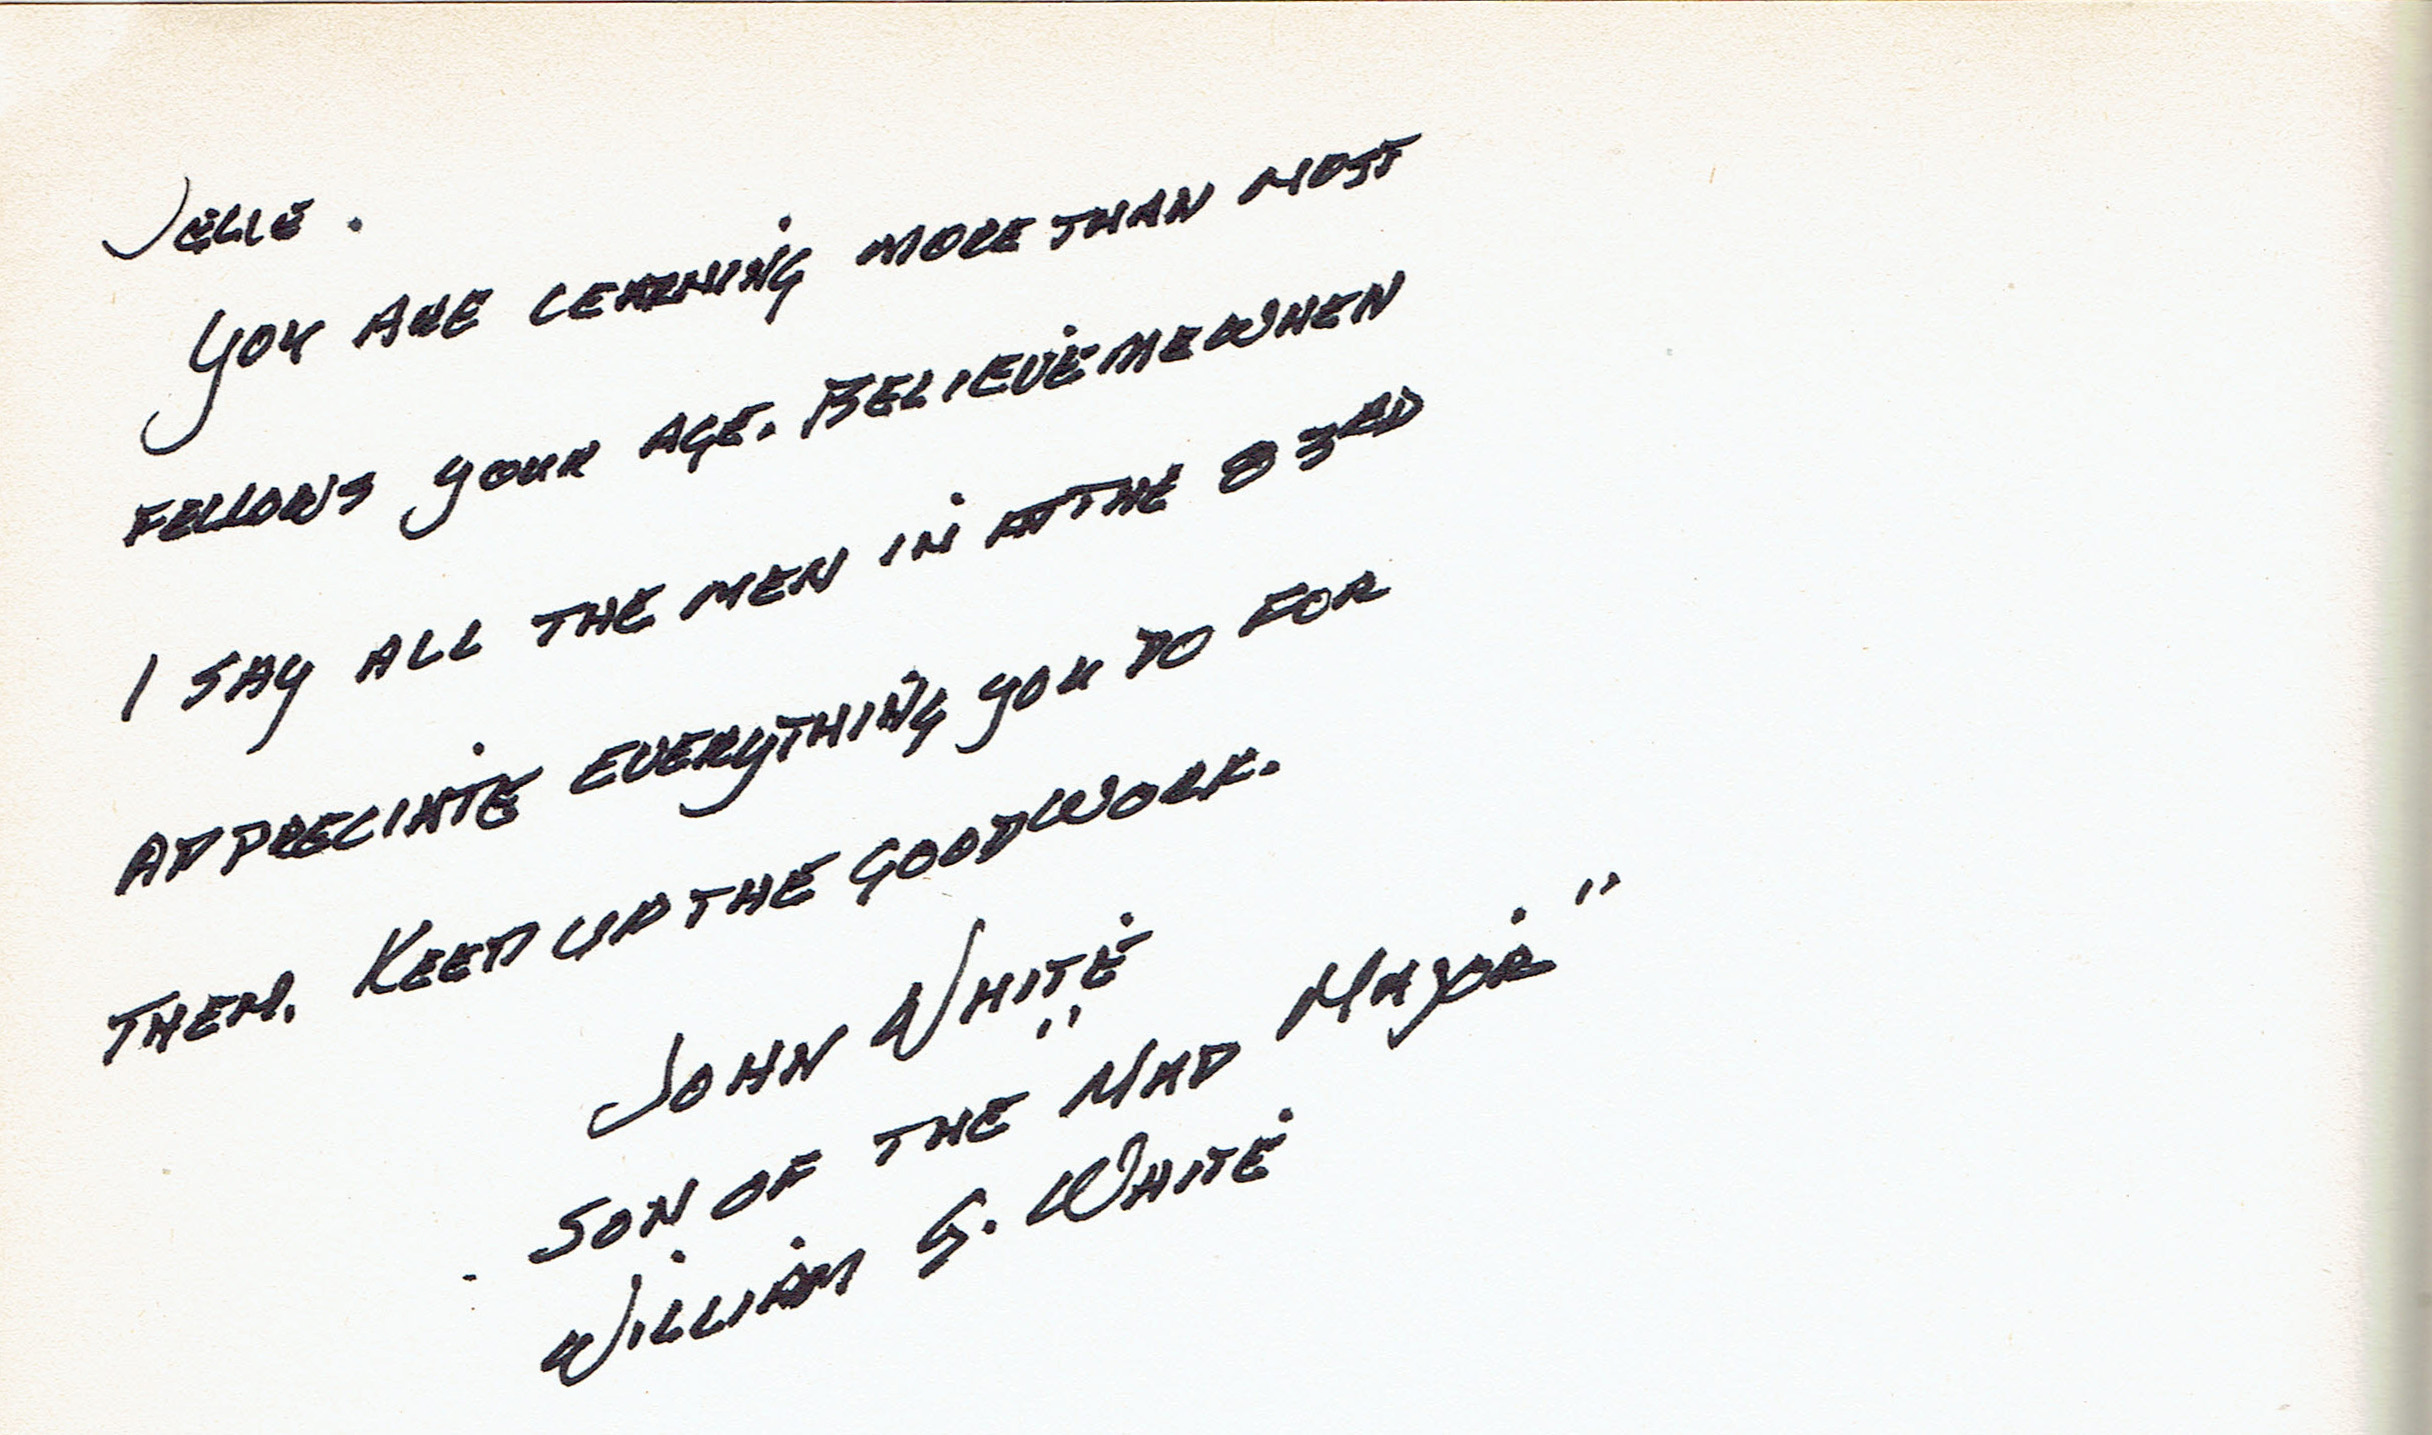 JELLE.
YOU ARE LEARNING MORE THAN MOST
FELLOWS YOUR AGE. BELIEVE ME WHEN
I SAY ALL THE MEN IN THE 83RD
APPRECIATE EVERYTHING YOU DO FOR
THEM. KEEP UP THE GOOD WORK.
JOHN WHITE
SON OF THE "MAD MAYOR"
WILLIAM G. WHITE